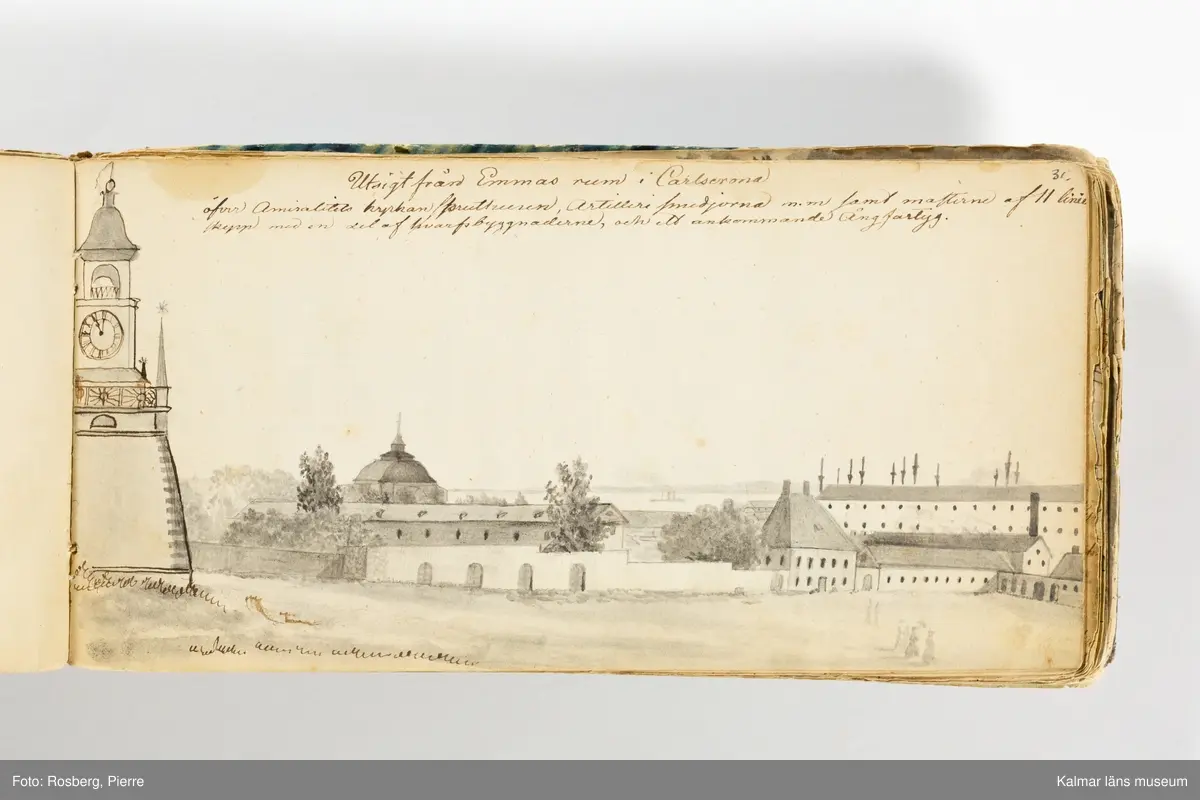 31.
Utsigt från Emmas rum i Carlscrona
öfver Amiralitets kyrkan, Artilleri smedjorna m.m samt masterne af 11 linie
skepp med en del af hvarfsbyggnaderne, och ett ankommande Ångfartyg.
Foto: Rosberg, Pierre
Kalmar läns museum